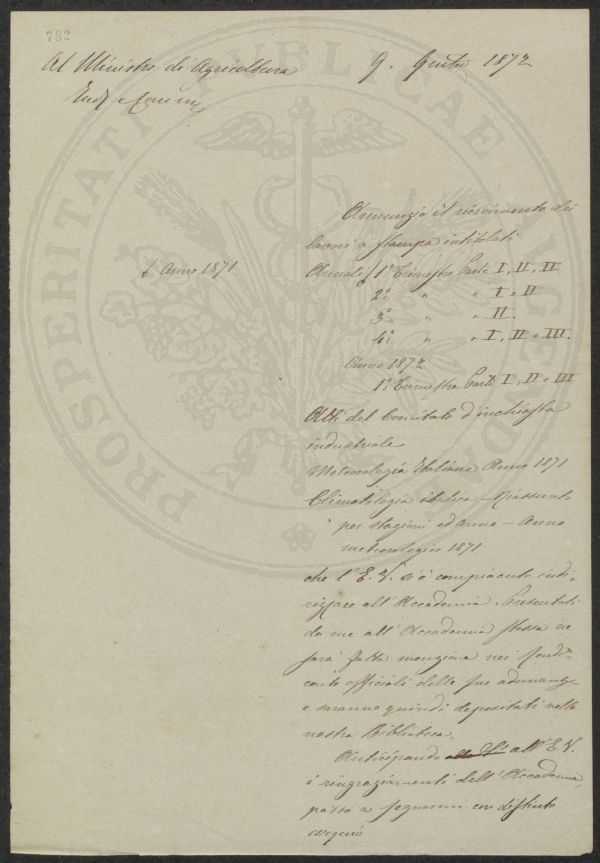 782
Al Ministro di Agricoltura
9. 1872
Annunzio il ricevimento dei
lavori a stampa intitolati
Annali / 1º Trimestre Parte I, II, III
/ Anno 1871
2º " " I e II
3º " " II.
4º " " I, II e III.
Anno 1872
1º Trimestre Parte I, II e III
Atti del Comitato d'inchiesta
industriale
Meteorologia Italiana Anno 1871
Climatologia italica – Riassunto
per stagioni ed anno – Anno
meteorologico 1871
che l'E. V. si è compiaciuta indi-
rizzare all'Accademia. Presentati
da me all'Accademia stessa ne
sarà fatta menzione nei Rendi-
conti officiali delle sue adunanze
e saranno quindi depositati nella
nostra Biblioteca.
Anticipando all'E. V.
i ringraziamenti dell'Accademia,
passo a segnarmi con distinto
ossequio
PROSPERITATI PUBLICAE AUGENDAE